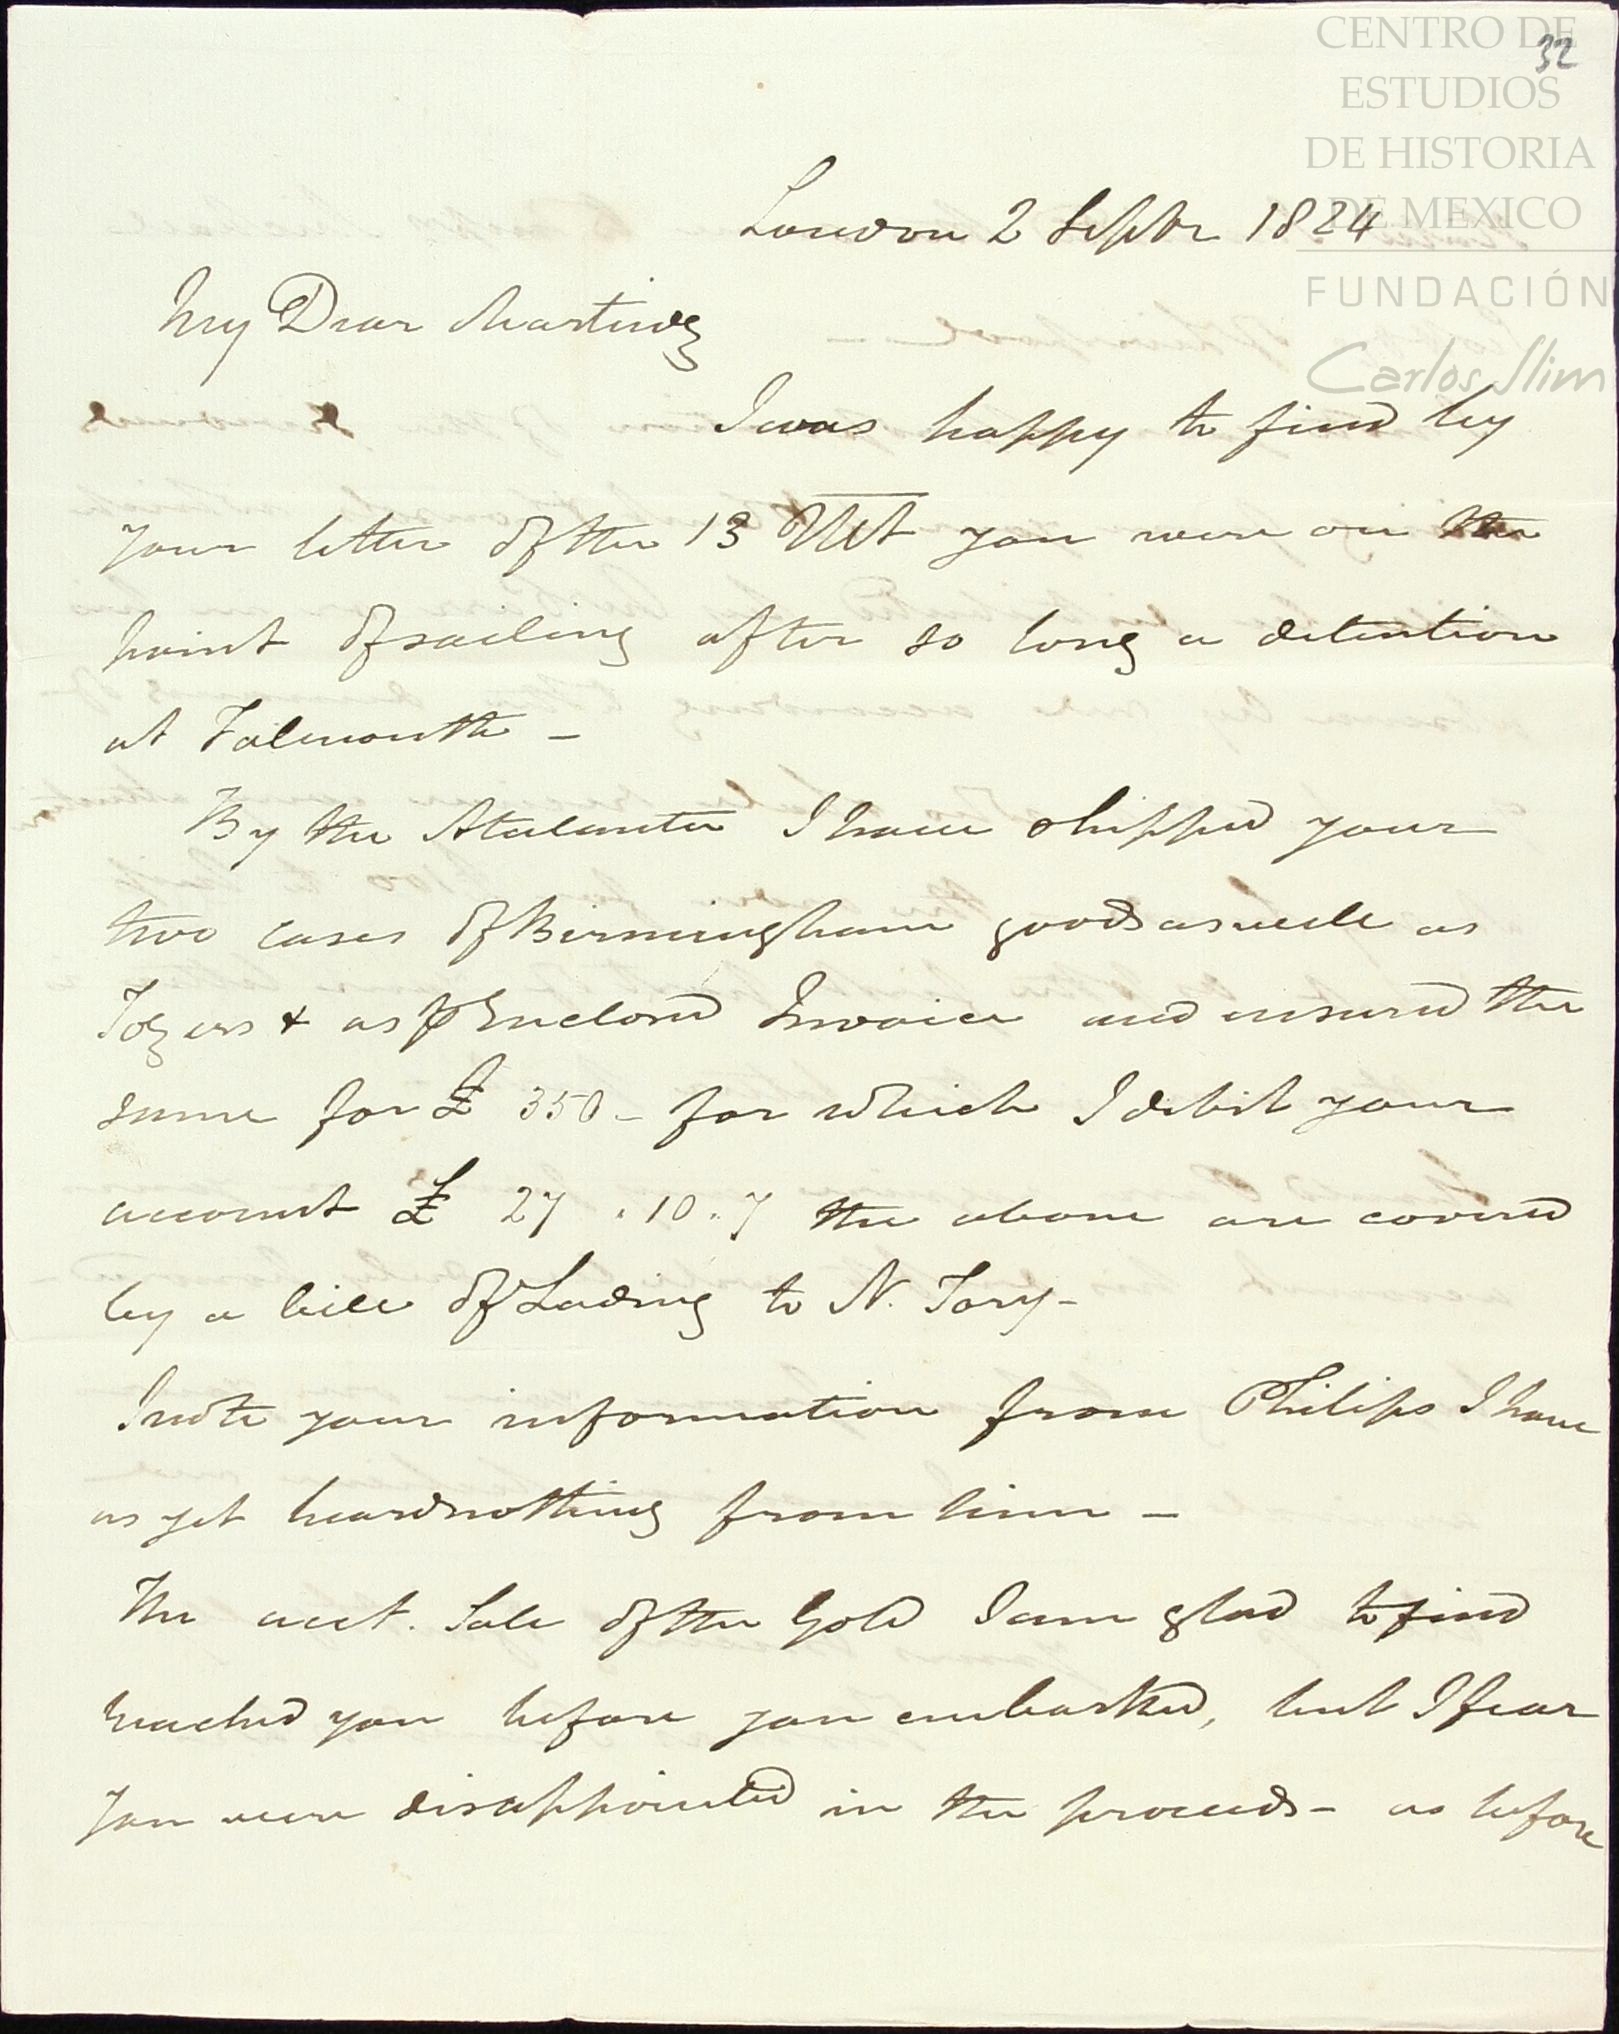 CENTRO DE
ESTUDIOS
DE HISTORIA
DE MEXICO
FUNDACIÓN
Carlos Slim
32
London 2 Septr 1824
My Dear Martinez
I was happy to find by
your letter of the 13 Ult you were on the
point of sailing after so long a detention
at Falmouth -
By the Atalanta I have shipped your
two cases of Birmingham goods as well as
& as p Enclosed Invoice and insured the
same for £ 350 - for which I debit your
account £ 27 . 10 . 7 the above are covered
by a bill of Lading to N. Tory -
I note your information from Philips I have
as yet heard nothing from him -
The acct. Sale of the Gold I am glad to find
reached you before you embarked, but I fear
you were disappointed in the proceeds - as before